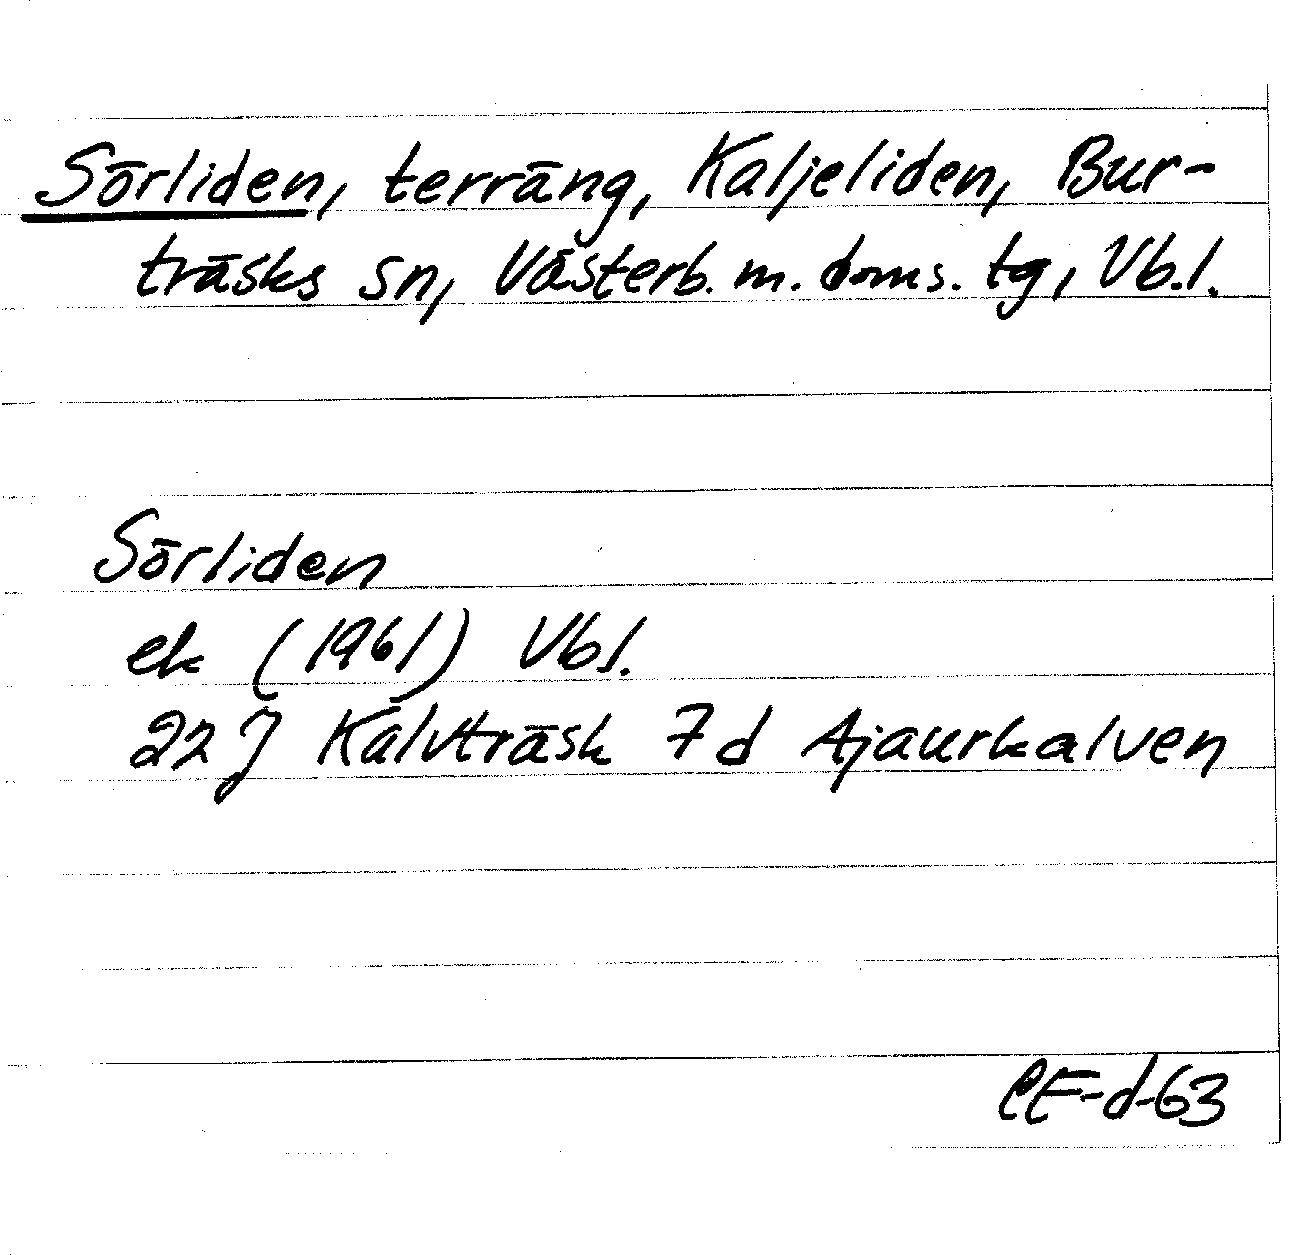 Sörliden, terräng, Kaljeliden, Bur-
träsks sn, Västerb. m. doms. tg, Vb.l.
Sörliden
ek (1961) Vbl.
22 J Kalvträsk 7 d Ajaurkalven
CE-d-63